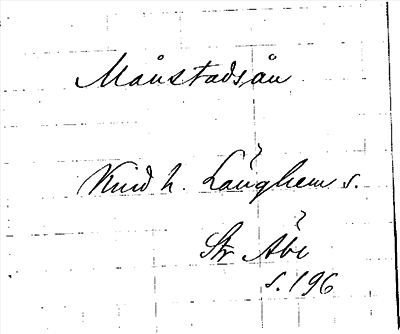 Månstadsån
Kind h. Länghem s.
Str Åbi
s. 196